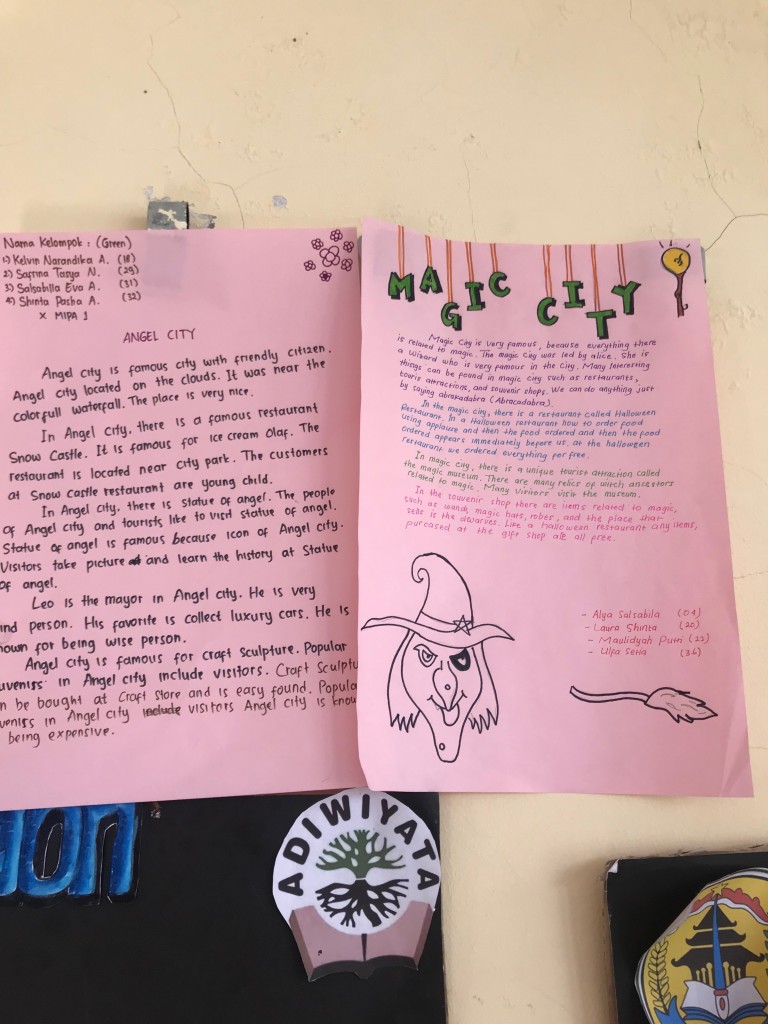 Nama Kelompok : (Green)
1) Kelvin Narandika A. (18)
2) Safrina Tasya N. (29)
3) Salsabilla Eva A. (31)
4) Shinta Pasha A. (32)
X MIPA 1
ANGEL CITY
Angel city is famous city with friendly citizen.
Angel city located on the clouds. It was near the
colorfull waterfall. The place is very nice.
In Angel city, there is a famous restaurant
Snow Castle. It is famous for ice cream Olaf. The
restaurant is located near city park. The customers
at Snow Castle restaurant are young child.
In Angel city, there is statue of angel. The people
of Angel city and tourists like to visit statue of angel.
Statue of angel is famous because icon of Angel city.
Visitors take picture and learn the history at Statue
of angel.
Leo is the mayor in Angel city. He is very
ind person. His favorite is collect luxury cars. He is
nown for being wise person.
Angel city is famous for craft sculpture. Popular
uvenirs in Angel city include visitors. Craft Sculptu
n be bought at Craft Store and is easy found. Popula
venirs in Angel city include visitors Angel city is know
being expensive.
MAGIC CITY
Magic City is very famous, because everything there
is related to magic. The magic City was led by alice. She is
a Wizard who is very famous in the City. Many Interesting
things can be found in magic city such as restaurants,
touris attractions, and souvenir shops. We can do anything just
by saying abrakadabra (Abracadabra).
In the magic city, there is a restaurant called Halloween
Restaurant. In a Halloween restaurant how to order food
using applause and then the food ordered and then the food
ordered appears immediately before us. at the halloween
restaurant we ordered everything for free.
In magic city, there is a unique tourist attraction called
the magic museum. There are many relics of witch ancestors
related to magic. Many visitors visit the museum.
In the souvenir shop there are items related to magic,
such as wands, magic hats, robes, and the place that
sells is the dwarves. Like a halloween restaurant city items,
purcased at the gift shop are all free.
- Alya Salsabila (04)
- Laura Shinta (20)
- Maulidyah Putri (22)
- Ulfa Setia (36)
on
ADIWIYATA